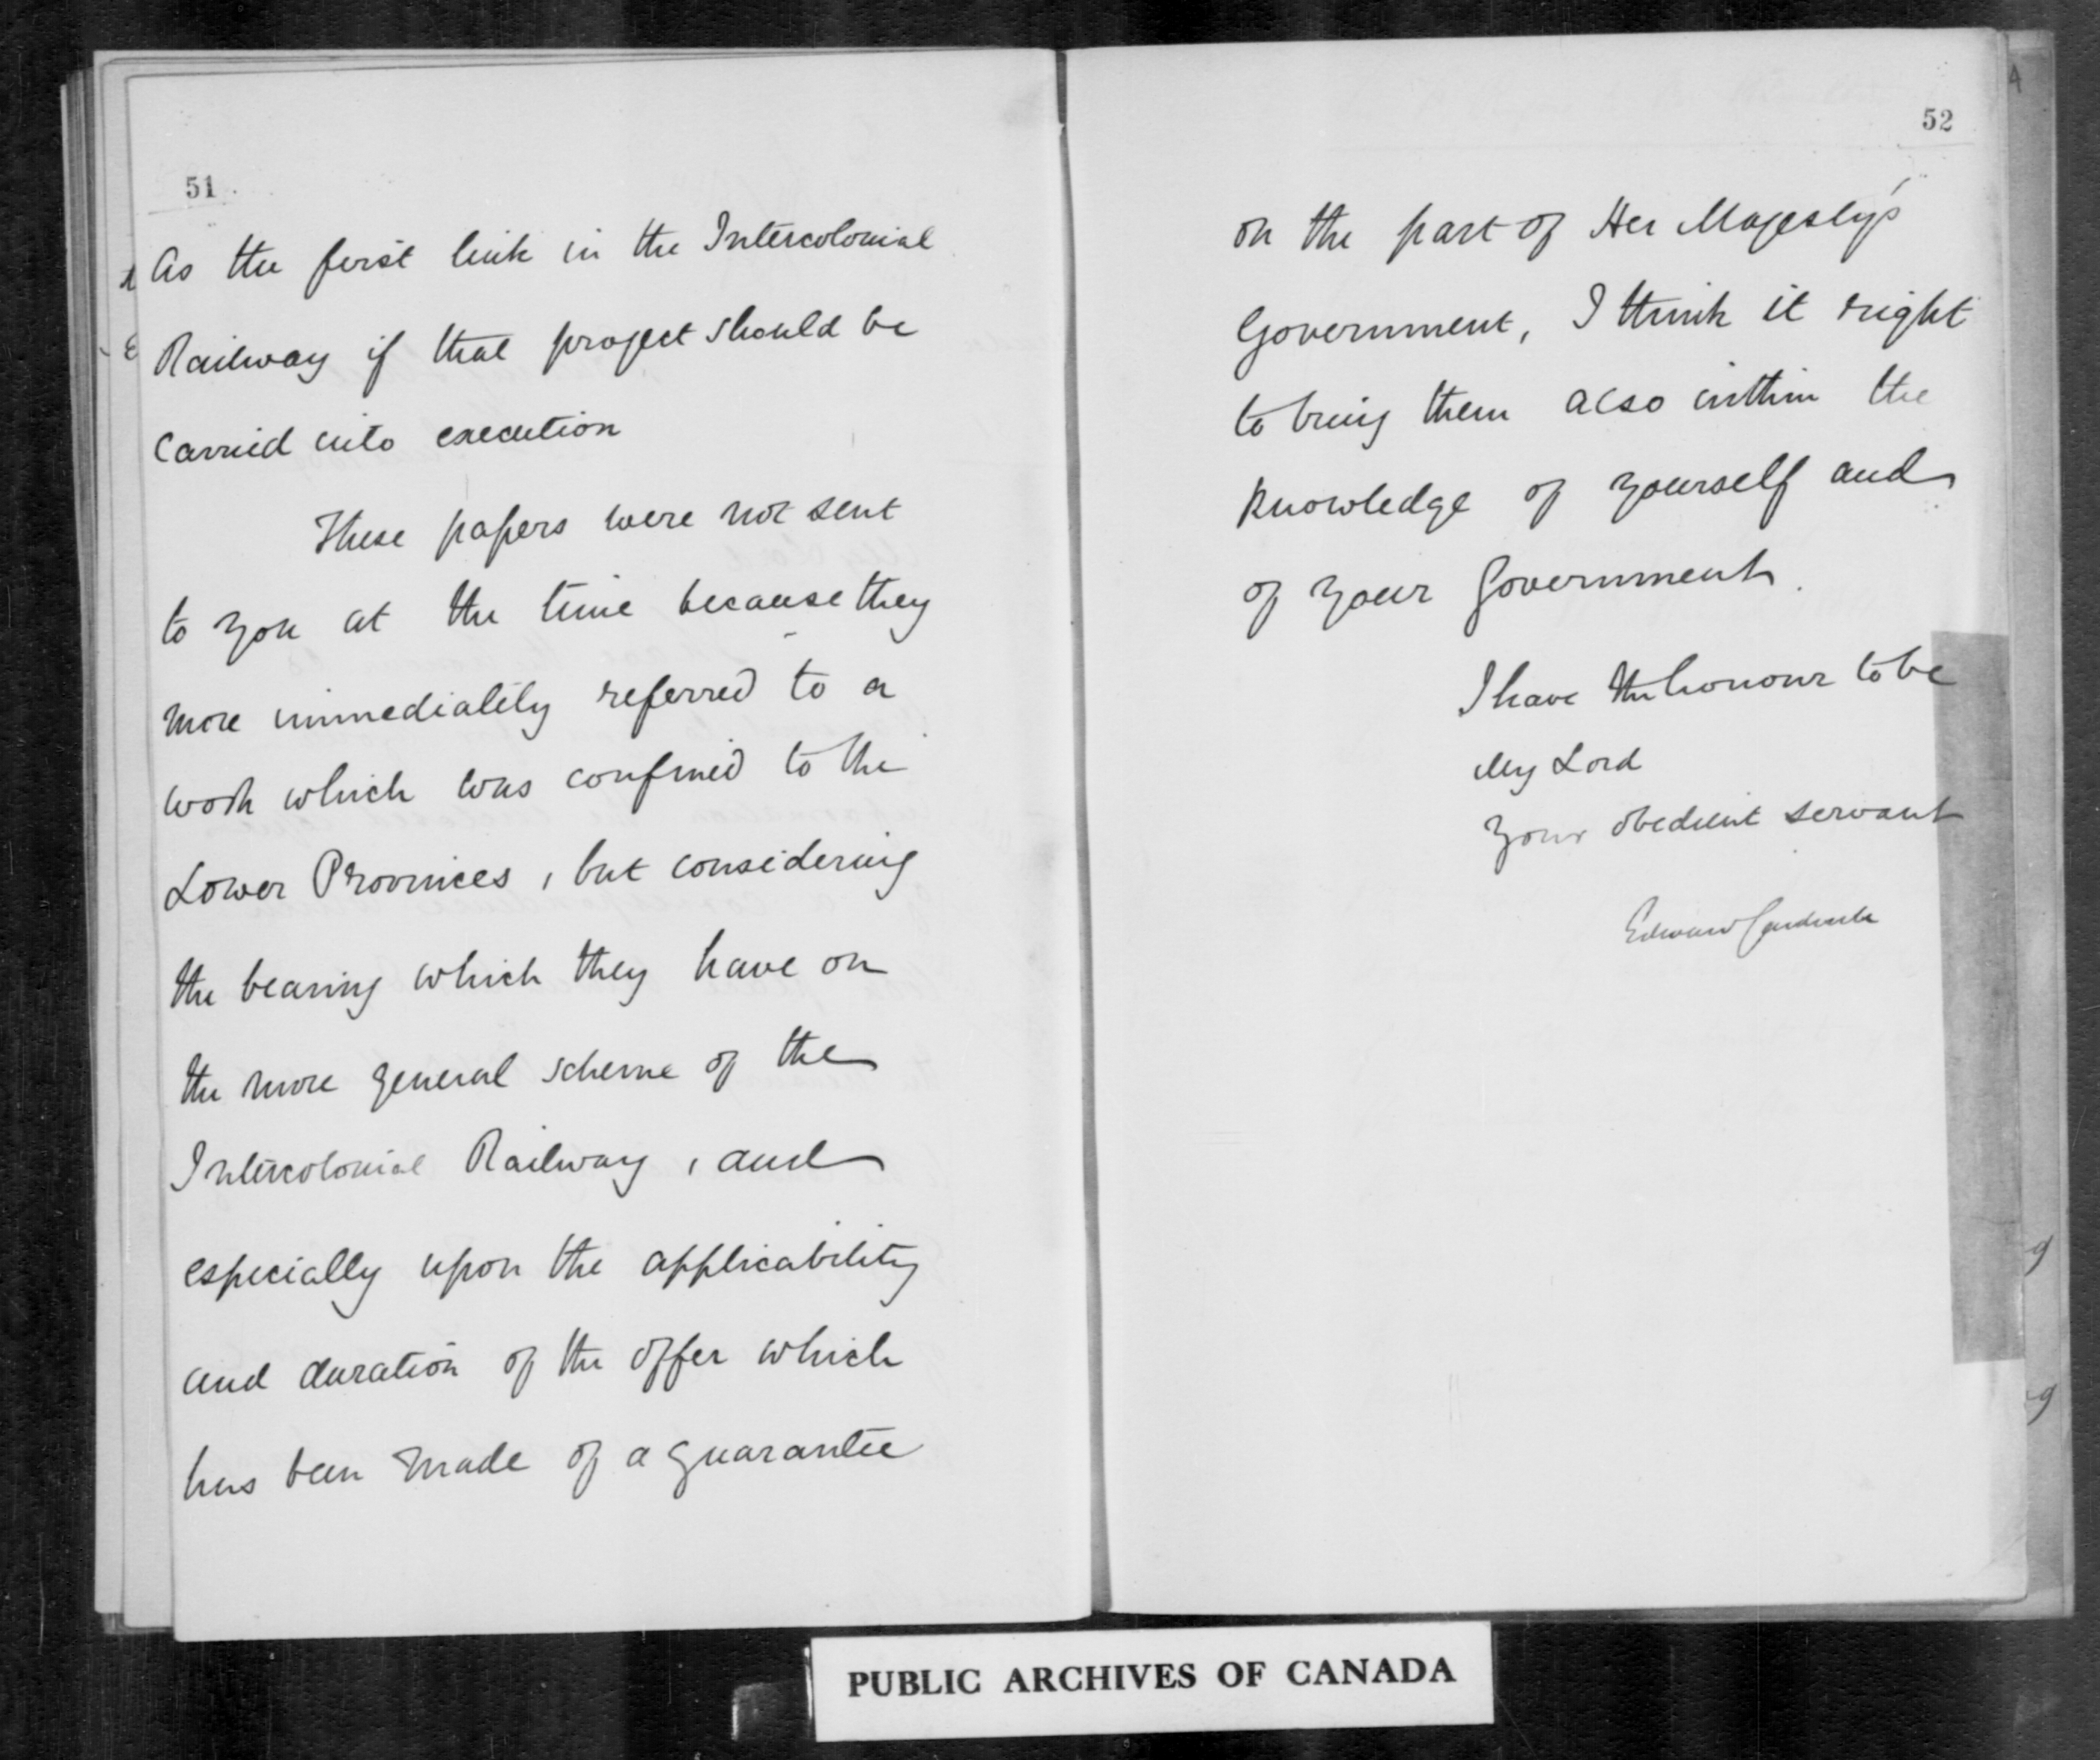 51
as the first link in the Intercolonial
Railway if that project should be
carried into execution
These papers were not sent
to you at the time because they
more immediately referred to a
work which was confined to the
Lower Provinces, but considering
the bearing which they have on
the more general scheme of the
Intercolonial Railway, and
especially upon the applicability
and duration of the offer which
has been made of a guarantee
52
on the part of Her Majesty's
Government, I think it right
to bring them also within the
knowledge of yourself and
of your Government.
I have the honour to be
My Lord
Your obedient servant
Edward Cardwell
PUBLIC ARCHIVES OF CANADA